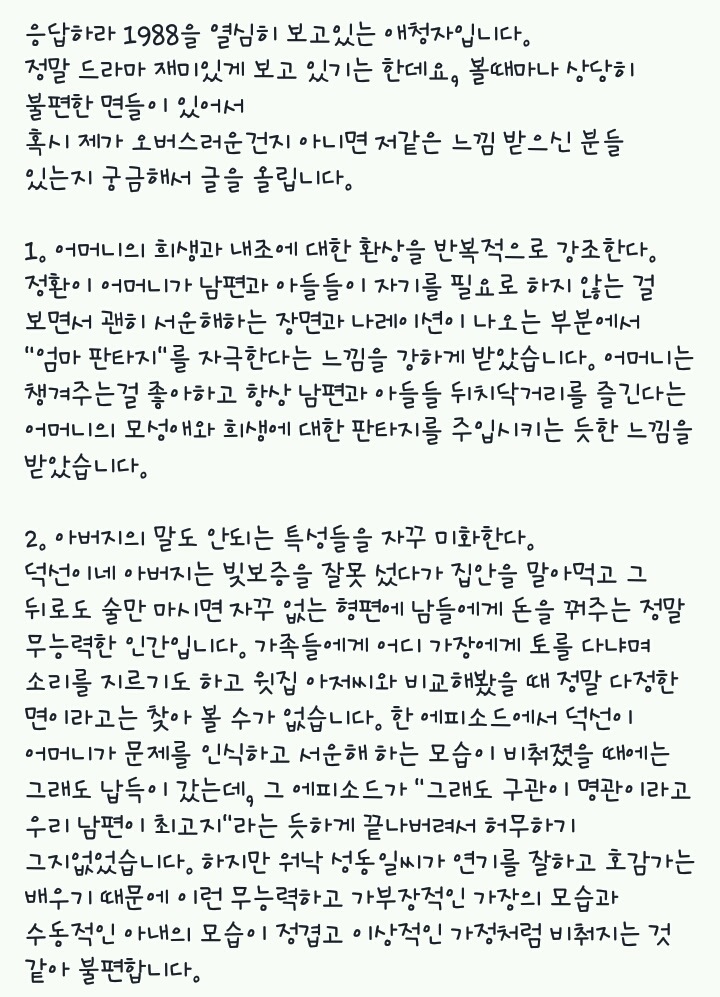 응답하라 1988을 열심히 보고있는 애청자입니다.
정말 드라마 재미있게 보고 있기는 한데요, 볼때마나 상당히
불편한 면들이 있어서
혹시 제가 오버스러운건지 아니면 저같은 느낌 받으신 분들
있는지 궁금해서 글을 올립니다.
1. 어머니의 희생과 내조에 대한 환상을 반복적으로 강조한다.
정환이 어머니가 남편과 아들들이 자기를 필요로 하지 않는 걸
보면서 괜히 서운해하는 장면과 나레이션이 나오는 부분에서
"엄마 판타지"를 자극한다는 느낌을 강하게 받았습니다. 어머니는
챙겨주는걸 좋아하고 항상 남편과 아들들 뒤치닥거리를 즐긴다는
어머니의 모성애와 희생에 대한 판타지를 주입시키는 듯한 느낌을
받았습니다.
2. 아버지의 말도 안되는 특성들을 자꾸 미화한다.
덕선이네 아버지는 빚보증을 잘못 섰다가 집안을 말아먹고 그
뒤로도 술만 마시면 자꾸 없는 형편에 남들에게 돈을 꿔주는 정말
무능력한 인간입니다. 가족들에게 어디 가장에게 토를 다냐며
소리를 지르기도 하고 윗집 아저씨와 비교해봤을 때 정말 다정한
면이라고는 찾아 볼 수가 없습니다. 한 에피소드에서 덕선이
어머니가 문제를 인식하고 서운해 하는 모습이 비춰졌을 때에는
그래도 납득이 갔는데, 그 에피소드가 "그래도 구관이 명관이라고
우리 남편이 최고지"라는 듯하게 끝나버려서 허무하기
그지없었습니다. 하지만 워낙 성동일씨가 연기를 잘하고 호감가는
배우기 때문에 이런 무능력하고 가부장적인 가장의 모습과
수동적인 아내의 모습이 정겹고 이상적인 가정처럼 비춰지는 것
같아 불편합니다.